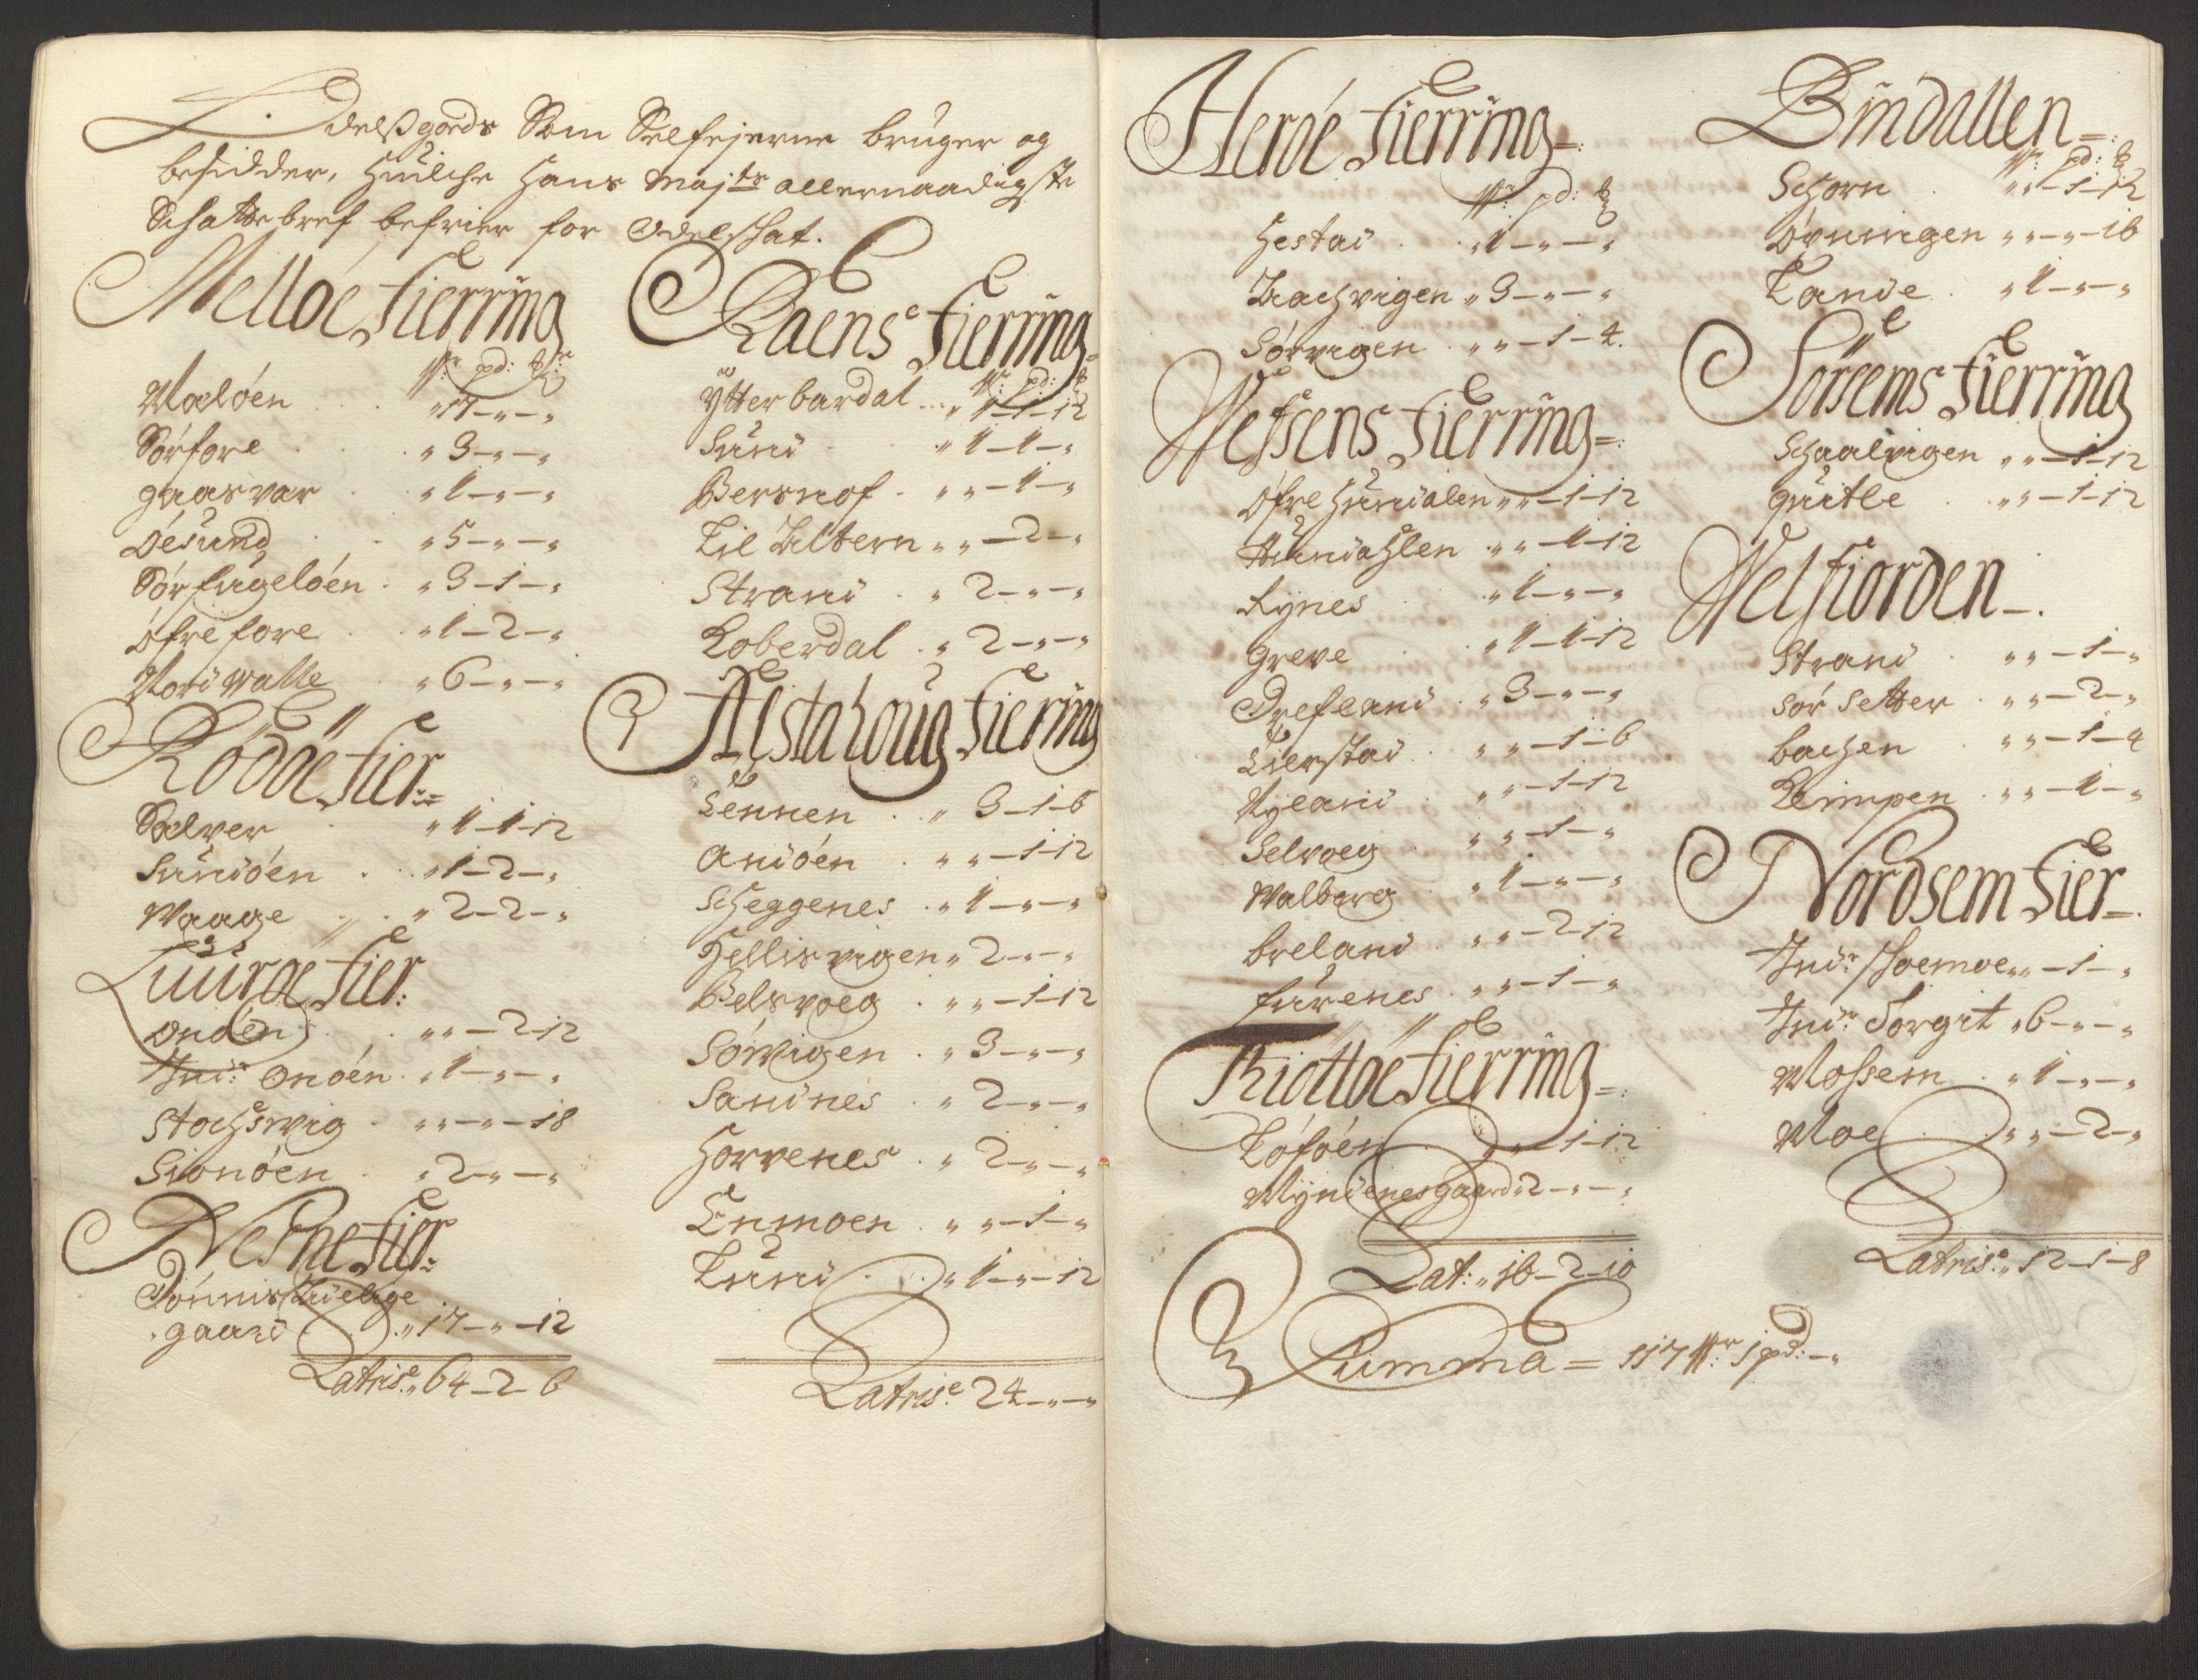 Odelsgods Som Selfejerne bruger og
besidder, Huilche Hans Maj:ts allernaadigste
Schattebref befrier for Odelschat.
Melløe Fierring
W: pd: 
Valøen „17-„-„
Sørfore „3-„-„
gaasvar „1-„-„
Døesund „5-„-„
Sørfugeløen „3-1-„
Øfre fore „1-2-„
Nord Walle „6-„-„
Rødøe Fier:
Selver „1-1-12
Sundøen „1-2-„
Waage „2-2-„
Luurøe Fier:
Onøen „„-2-12
Ind: Onøen „1-„-„
Stochswig „„-„-18
Sionøen „2-„-„
Nesne Fier:
Dønnis Adelige
gaard „17-„-12
Latris: „64-2-6
Raens Fierring
W: pd:
Ytterbardal „1-1-12
Sund „1-1-„
Bersnof „„-1-„
Lil Altern „„-2-„
Strand „2-„-„
Roberdal „2-„-„
Alstahoug Fierring
Tennen „3-1-6
Andøen „„-1-12
Scheggenes „1-„-„
Hellisvigen „2-„-„
Belsvoeg „„-1-12
Sørvigen „3-„-„
Sandnes „2-„-„
Horvenes „2-„-„
Enmoen „„-1-„
Lund „1-„-12
Latris: 24-„-„
Herøe Fierring
W: pd:
Hestad „1-„-„
Zachvigen „3-„-„
Sørvigen „„-1-4.
Wefsens Fierring
Øfre Hundalen „„-1-12
Hundahlen „„-1-12
Kynes „1-„-„
Greve „1-1-12
Drefland „3-„-„
Tierstad „„-1-6
Nyland „„-1-12
Selvoeg „„-1-„
Walberg „1-„-„
breland „„-2-12
furenes „„-1-„
Thiøttøe Fierring
Løføen „„-1-12
Myndenes gaard „2-„-„
Lat: „16-2-10
Summa = 117 W: 1 pd: -„
Bindallen
W: pd:
Schorn „„-1-12
Øyningen „„-„-16
Lande „1-„-„
Sørsems Fierring
Schaalvigen „„-1-12
guitle „„-1-12
Welfiorden
Strand „„-1-„
Sør Setter „„-2-„
bachen „„-1-4
Reimpen „„-1-„
Nordsem Fier
Ind: Schoemoe „„-1-„
Ind: Torgit „6-„-„
Mossem „1-„-„
Moe „„-2-„
Latris: „12-1-8